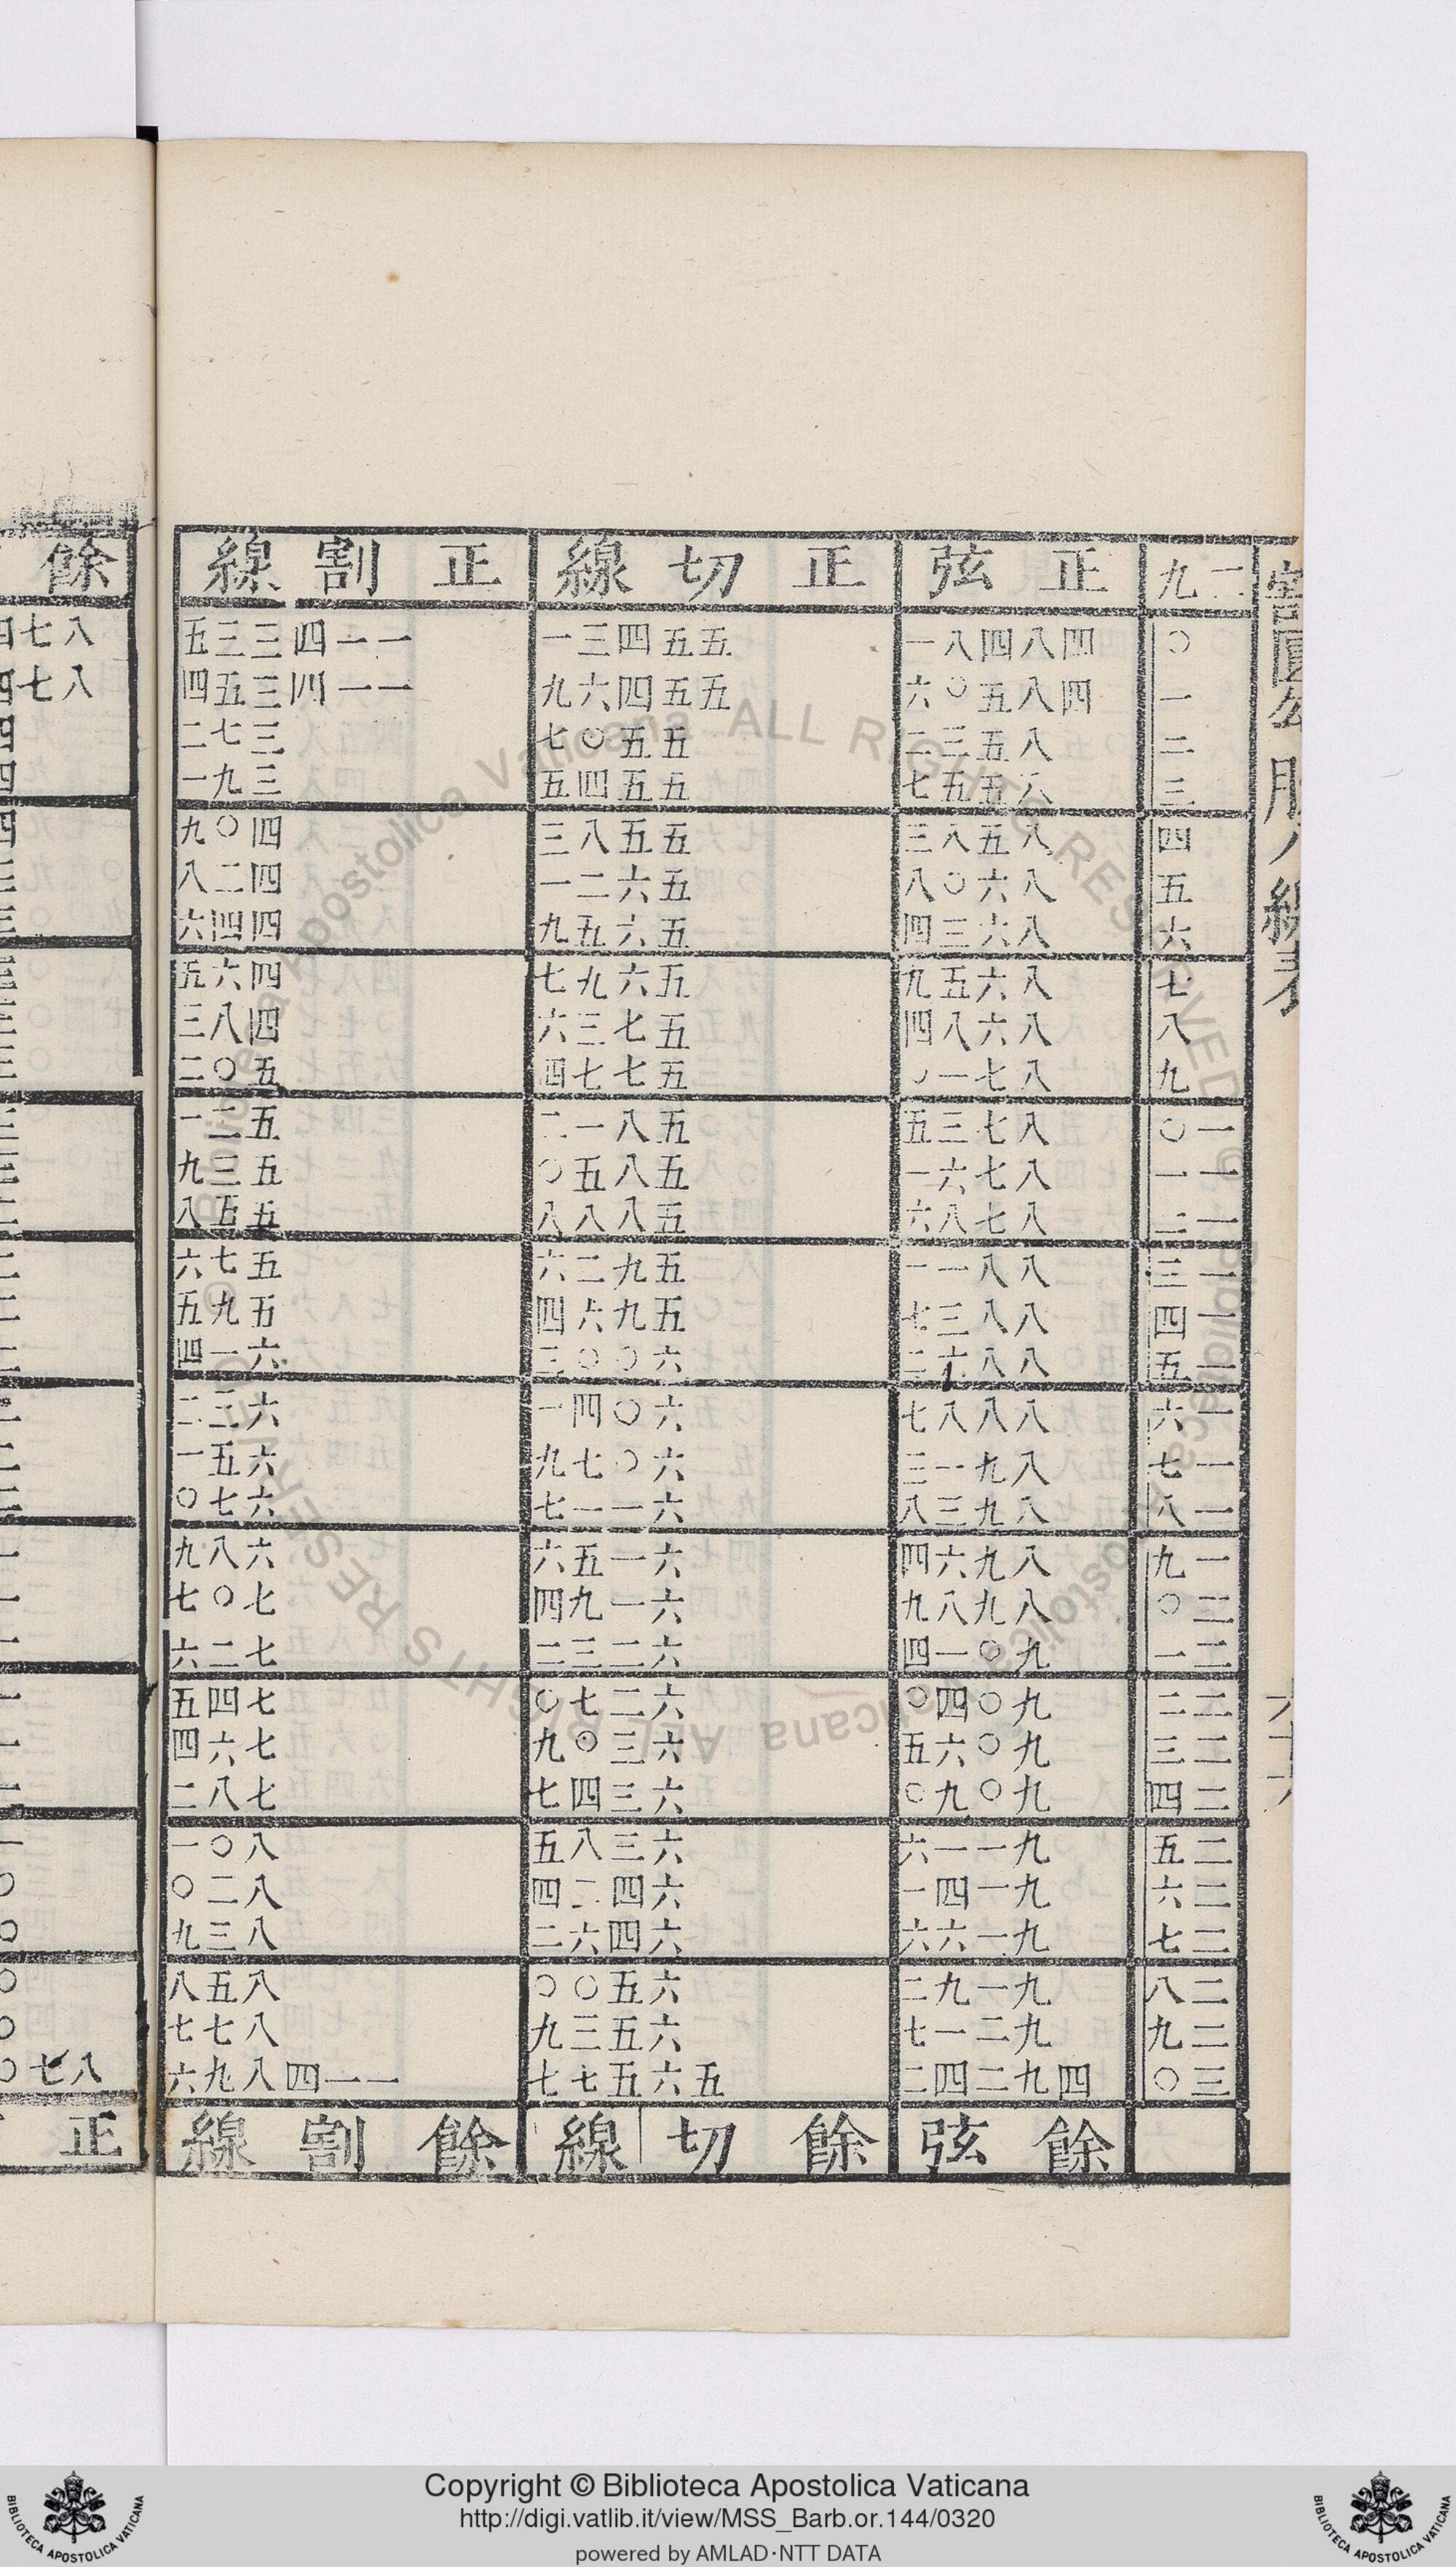 割圓勾股八線表
二九 正弦 正切線 正割線 餘
○ 四八四八一 五五四三一 一一四三三五 八七四
一 四八五○六 五五四六九 一一四三五四 八七四
二 八五三二 五五○七 三七二 四
三 八五五七 五五四五 三九一 四
四 八五八三 五五八三 四○九 四
五 八六○八 五六二一 四二八 三
六 八六三四 五六五九 四四六 三
七 八六五九 五六九七 四六五 三
八 八六八四 五七三六 四八三 三
九 八七一○ 五七七四 五○二 三
一○ 八七三五 五八一二 五二一 三
一一 八七六一 五八五○ 五三九 三
一二 八七八六 五八八八 五五八 三
一三 八八一一 五九二六 五七六 二
一四 八八三七 五九六四 五九五 二
一五 八八六二 六○○三 六一四 二
一六 八八八七 六○四一 六三二 二
一七 八九一三 六○七九 六五一 二
一八 八九三八 六一一七 六七○ 二
一九 八九六四 六一五六 六八九 一
二○ 八九八九 六一九四 七○七 一
二一 九○一四 六二三二 七二六 一
二二 九○四○ 六二七○ 七四五 一
二三 九○六五 六三○九 七六四 一
二四 九○九○ 六三四七 七八二 一
二五 九一一六 六三八五 八○一 一
二六 九一四一 六四二四 八二○ ○
二七 九一六六 六四六二 八三九 ○
二八 九一九二 六五○○ 八五八 ○
二九 九二一七 六五三九 八七七 ○
三○ 四九二四二 五六五七七 一一四八九六 八七○
餘弦 餘切線 餘割線 正
© Biblioteca Apostolica Vaticana ALL RIGHTS RESERVED
Copyright © Biblioteca Apostolica Vaticana
http://digi.vatlib.it/view/MSS_Barb.or.144/0320
powered by AMLAD·NTT DATA
BIBLIOTECA APOSTOLICA VATICANA
BIBLIOTECA APOSTOLICA VATICANA